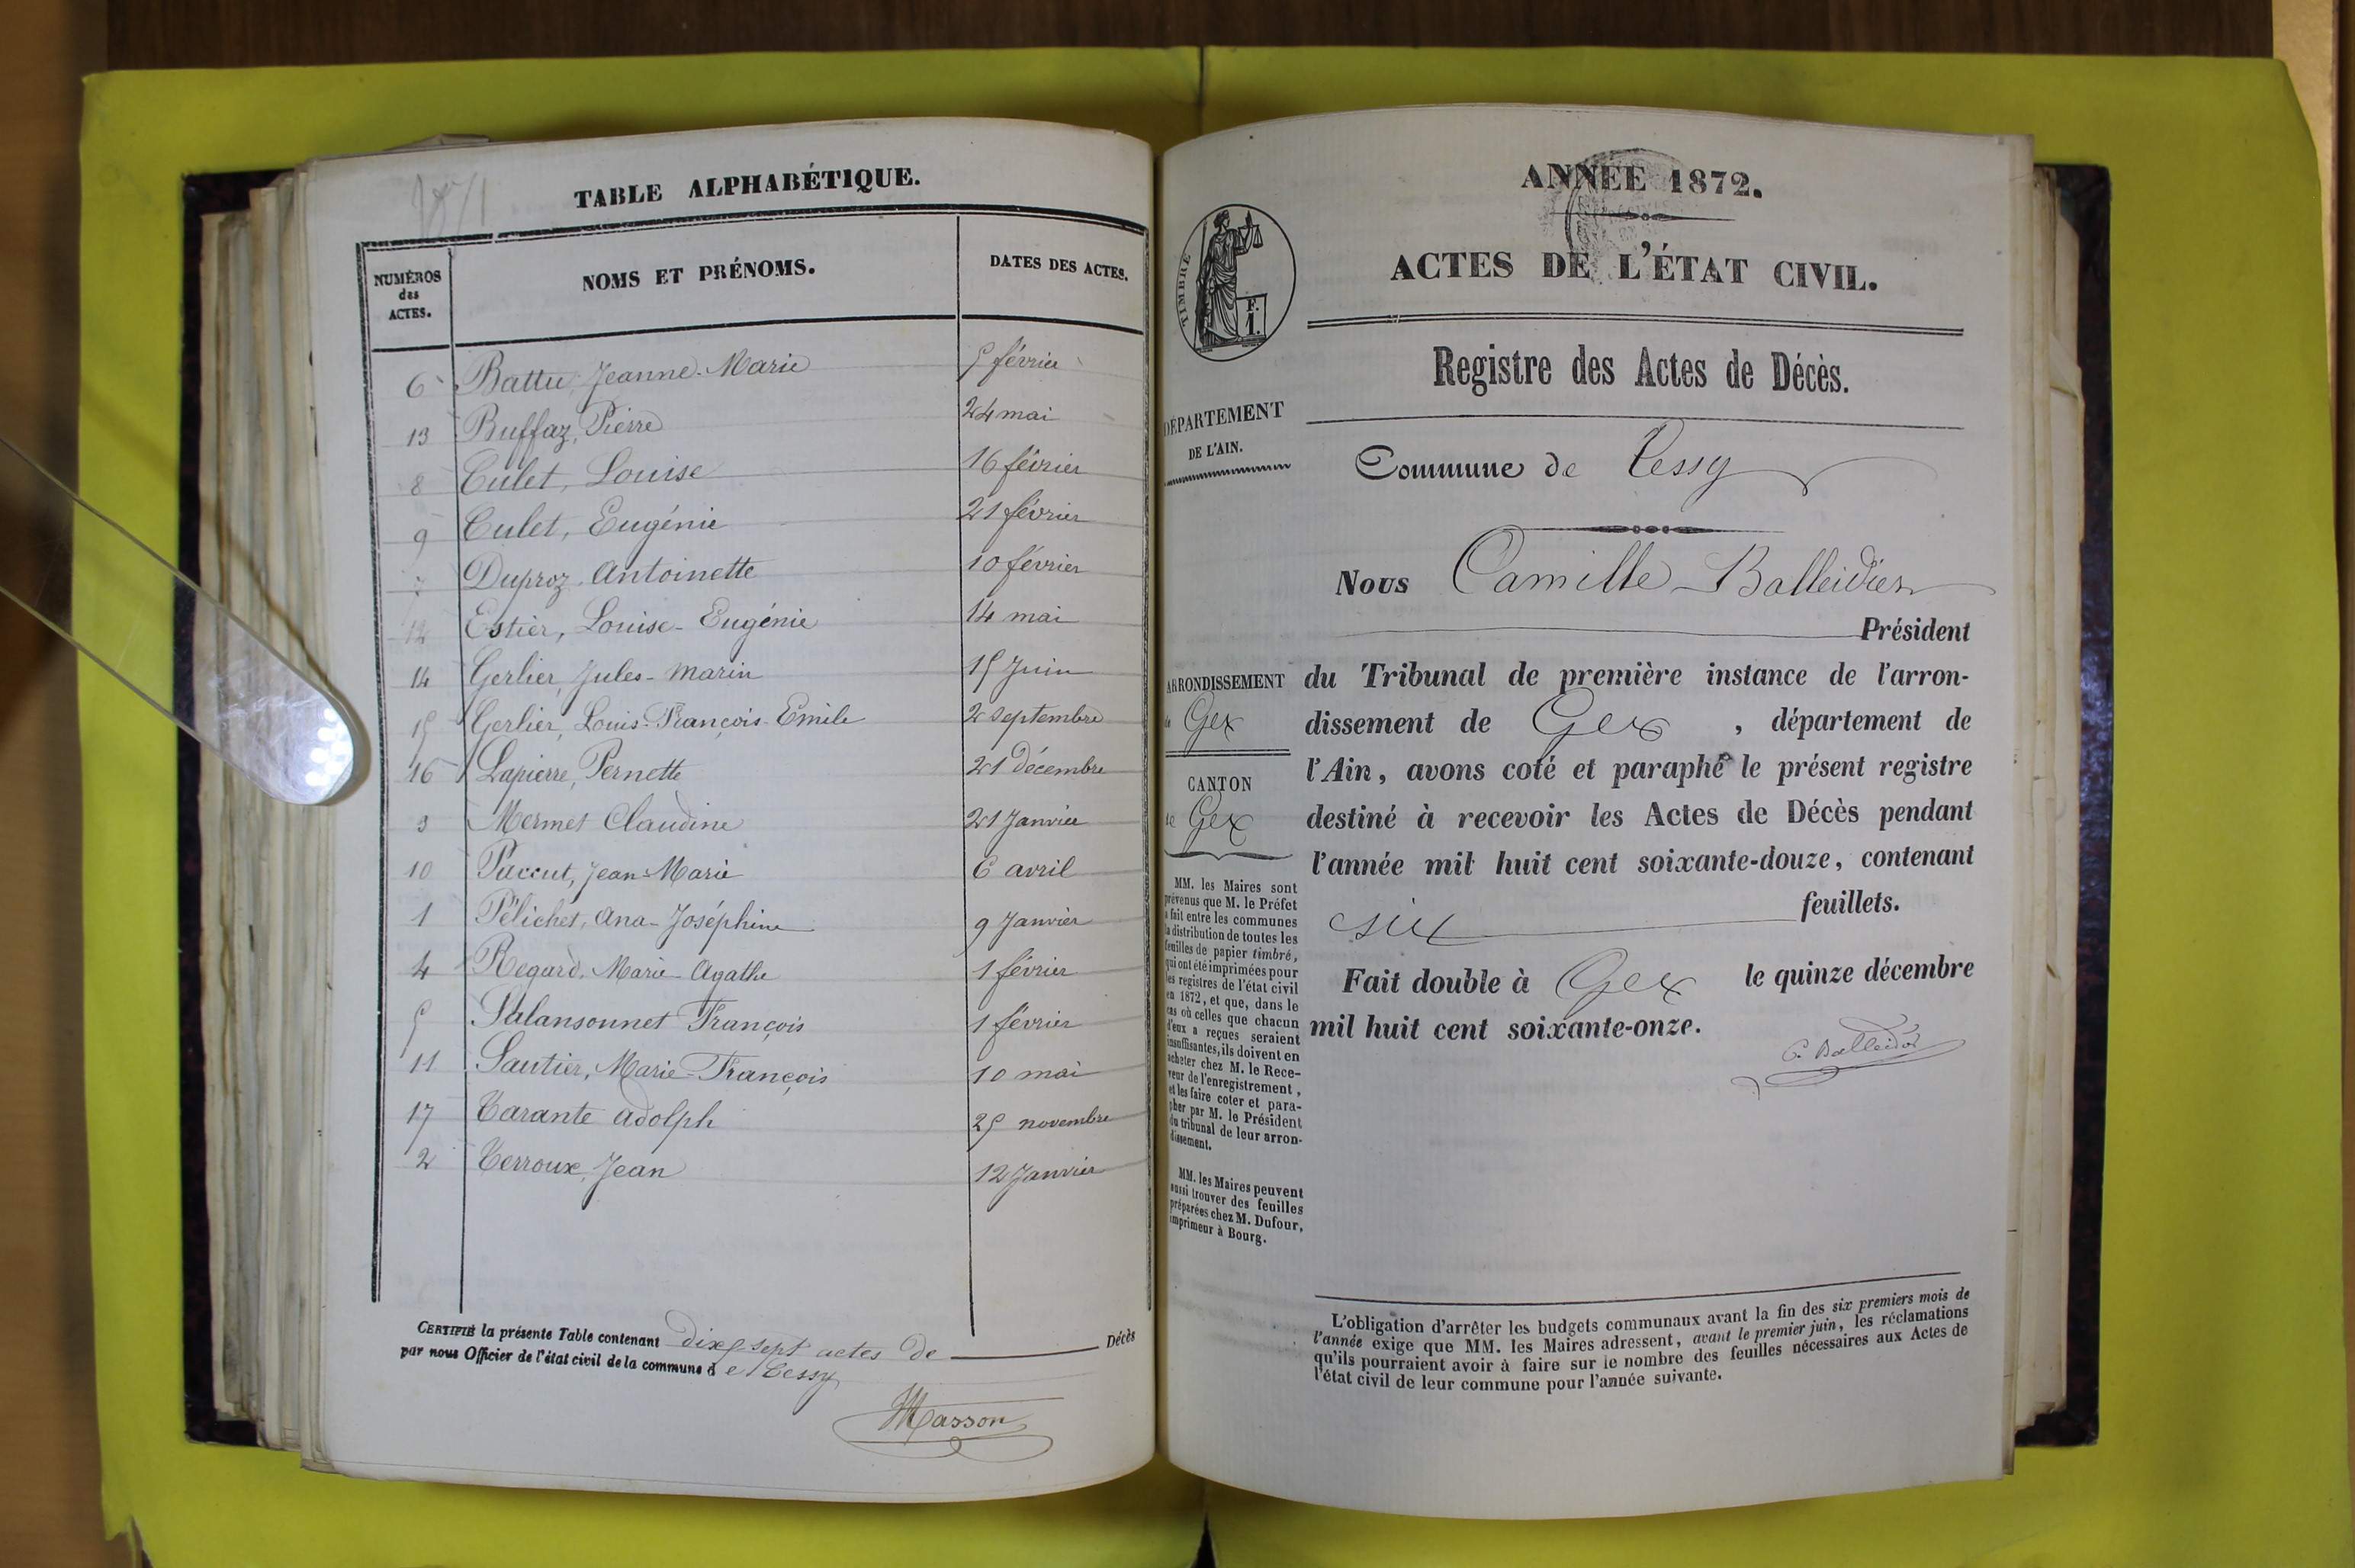 1871
TABLE ALPHABÉTIQUE.
NUMÉROS
des
ACTES.
NOMS ET PRÉNOMS.
DATES DES ACTES.
6 Battu Jeanne-Marie 5 février
13 Buffaz, Pierre 24 mai
8 Culet, Louise 16 février
9 Culet, Eugénie 21 février
7 Duproz Antoinette 10 février
12 Estier, Louise-Eugénie 14 mai
14 Gerlier, Jules-Marin 15 Juin
15 Gerlier, Louis-François-Emile 2 septembre
16 Lapierre, Pernette 21 décembre
3 Mermet Claudine 21 Janvier
10 Paccut, Jean-Marie 6 avril
1 Pélichet, Ana-Joséphine 9 Janvier
4 Regard, Marie-Agathe 1 février
5 Salansonnet François 1 février
11 Sautier, Marie-François 10 mai
17 Tarante Adolph 25 novembre
2 Terroux, Jean 12 Janvier
CERTIFIÉ la présente Table contenant dix sept actes de Décès
par nous Officier de l'état civil de la commune de Cessy
Masson
ANNÉE 1872.
TIMBRE
F.
1.
ACTES DE L'ÉTAT CIVIL.
Registre des Actes de Décès.
DÉPARTEMENT
DE L'AIN.
Commune de Cessy
Nous Camille Balleidier
Président
du Tribunal de première instance de l'arron-
dissement de Gex, département de
l'Ain, avons coté et paraphé le présent registre
destiné à recevoir les Actes de Décès pendant
l'année mil huit cent soixante-douze, contenant
six feuillets.
Fait double à Gex le quinze décembre
mil huit cent soixante-onze.
C. Balleidier
ARRONDISSEMENT
de Gex
CANTON
de Gex
MM. les Maires sont
prévenus que M. le Préfet
a fait entre les communes
la distribution de toutes les
feuilles de papier timbré,
qui ont été imprimées pour
les registres de l'état civil
en 1872, et que, dans le
cas où celles que chacun
d'eux a reçues seraient
insuffisantes, ils doivent en
acheter chez M. le Rece-
veur de l'enregistrement,
et les faire coter et para-
pher par M. le Président
du tribunal de leur arron-
dissement.
MM. les Maires peuvent
aussi trouver des feuilles
préparées chez M. Dufour,
imprimeur à Bourg.
L'obligation d'arrêter les budgets communaux avant la fin des six premiers mois de
l'année exige que MM. les Maires adressent, avant le premier juin, les réclamations
qu'ils pourraient avoir à faire sur le nombre des feuilles nécessaires aux Actes de
l'état civil de leur commune pour l'année suivante.